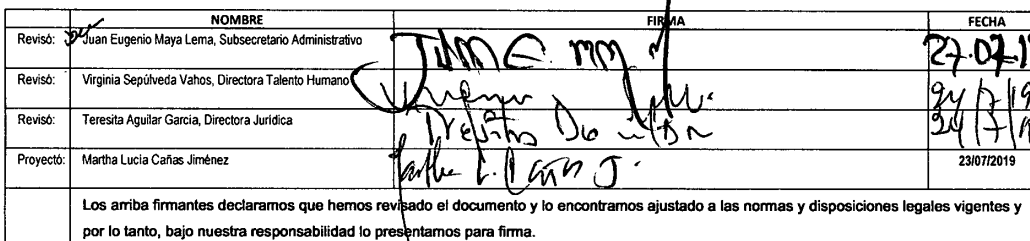 NOMBRE FIRMA FECHA
Revisó: Juan Eugenio Maya Lema, Subsecretario Administrativo 27-07-1
Revisó: Virginia Sepúlveda Vahos, Directora Talento Humano 24/7/19
Revisó: Teresita Aguilar Garcia, Directora Jurídica 24/7/1
Proyectó: Martha Lucia Cañas Jiménez Martha L. Cañas J. 23/07/2019
Los arriba firmantes declaramos que hemos revisado el documento y lo encontramos ajustado a las normas y disposiciones legales vigentes y
por lo tanto, bajo nuestra responsabilidad lo presentamos para firma.